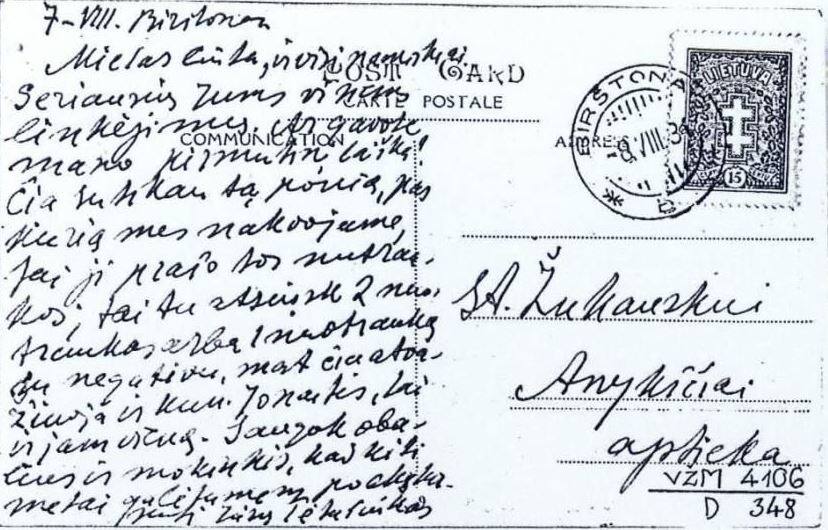 7-VIII. Birštonas
Mielas Cinta, ir visi namiškiai
Geriausius Jums visiems
linkėjimus. Ar gavote
mano pirmutinį laišką!
Čia sutikau tą ponią, pas
kurią mes nakvojame,
tai ji prašo tos nuotrau-
kos, tai tu atsiųsk 2 nuo-
traukos arba 1 nuotrauką
su negativu, mat čia atva-
žiuoja ir kun. Jonaitis, tai
ir jam vieną. Saugok oba-
lius ir mokinkis, kad kiti
metai galėtumėm
POST CARD
CARTE POSTALE
COMMUNICATION
ADRESSE
BIRŠTONAS
-9.VIII.3
LIETUVA
15
St. Žukauskui
Anykščiai
aptieka
VŽM 4106
D 348